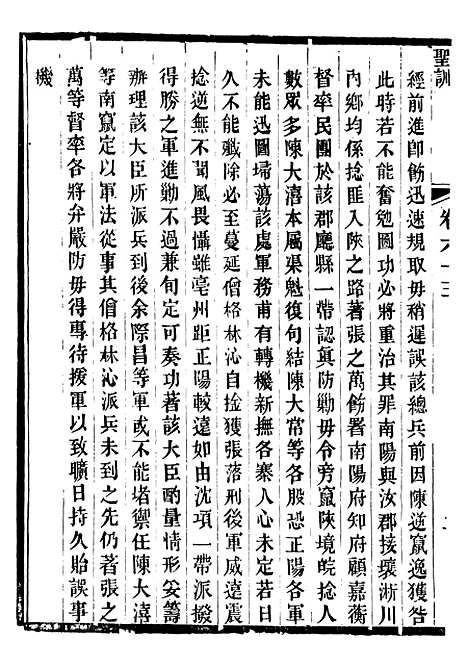 聖訓
卷六十三
經前進卽飭迅速規取毋稍遲誤該總兵前因陳逆竄逸獲咎
此時若不能奮勉圖功必將重治其罪南陽與汝郡接壤淅川
內鄉均係捻匪入陝之路著張之萬飭署南陽府知府顧嘉蘅
督率民團於該郡廳縣一帶認眞防勦毋令旁竄陝境皖捻人
數眾多陳大漋本屬渠魁復句結陳大常等各股恐正陽各軍
未能迅圖埽蕩該處軍務甫有轉機新撫各寨人心未定若日
久不能殲除必至蔓延僧格林沁自捡獲張落刑後軍威遠震
捻逆無不聞風畏懾雖亳州距正陽較遠如由沈項一帶派撥
得勝之軍進勦不過兼旬定可奏功著該大臣酌量情形妥籌
辦理該大臣所派兵到後余際昌等軍或不能堵禦任陳大漋
等南竄定以軍法從事其僧格林沁派兵未到之先仍著張之
萬等督率各將弁嚴防毋得專待援軍以致曠日持久貽誤事
機